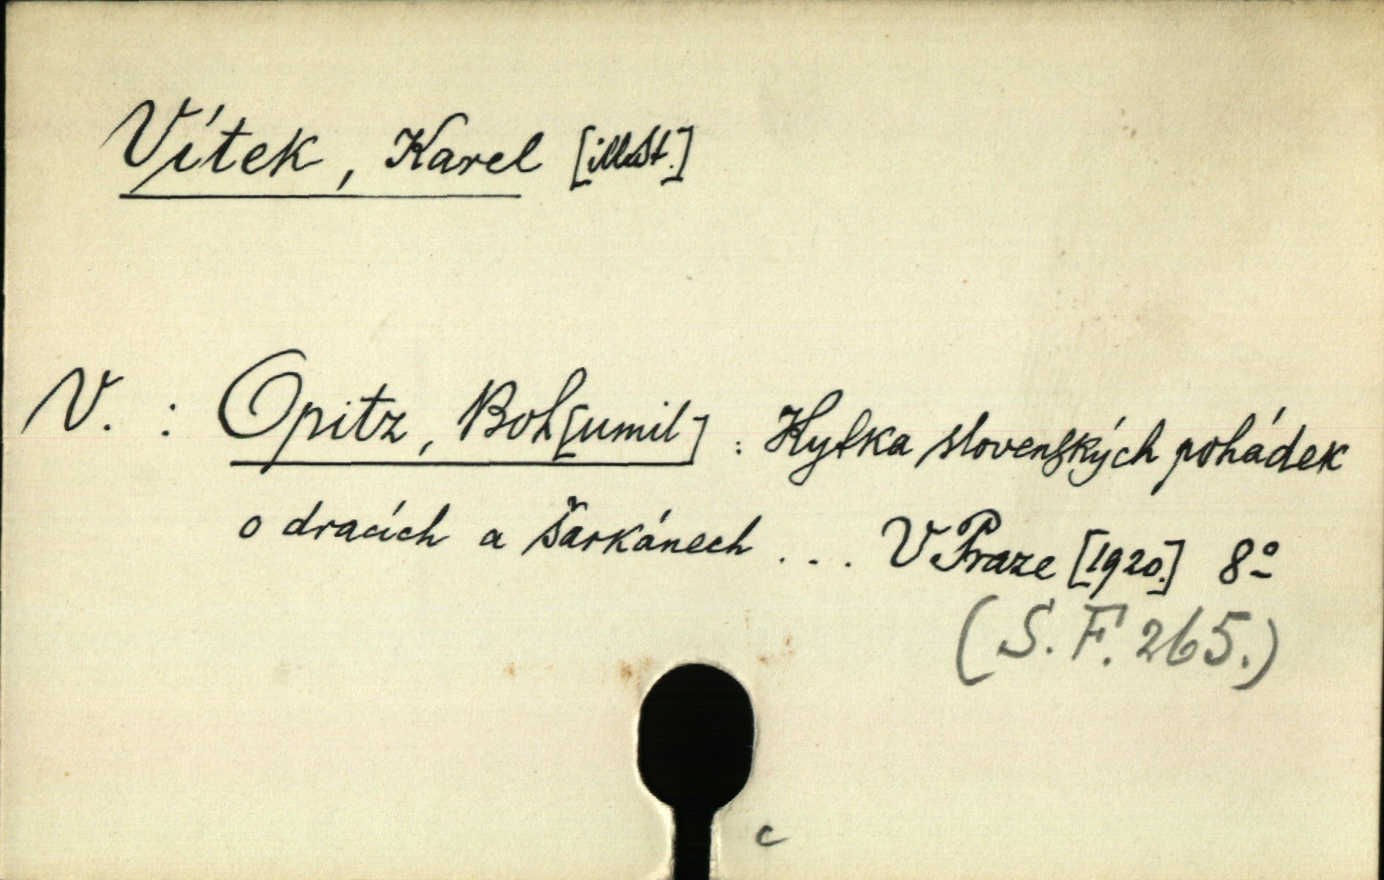 Vítek, Karel [illust.]
V. : Opitz, Boh[umil] : Kytka slovenských pohádek
o dracích a šarkánech ... V Praze [1920.] 8º
(S. F. 265.)
c